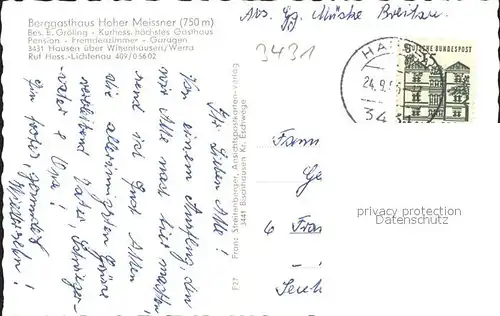 Berggasthaus Hoher Meissner (750 m)
Bes. E. Gröling - Kurhess. höchstes Gasthaus
Pension - Fremdenzimmer - Garagen
3431 Hausen über Witzenhausen/Werra
Ruf Hess.-Lichtenau 409/05602
Abs. Gg.
3431
DEUTSCHE BUNDESPOST
24.9.
343
Ihr Lieben Alle!
Von einem Ausflug, den
wir Alle nach hier machten
send ich Euch Allen
die allerinnigsten Grüße
verbleibend Vater, Schwieger-
vater & Opa!
Wiedersehn!
F27 Franz Streitenberger, Ansichtspostkarten-Verlag
3441 Bischhausen Kr. Eschwege
Fam
6 Fran
privacy protection
DATENSCHUTZ